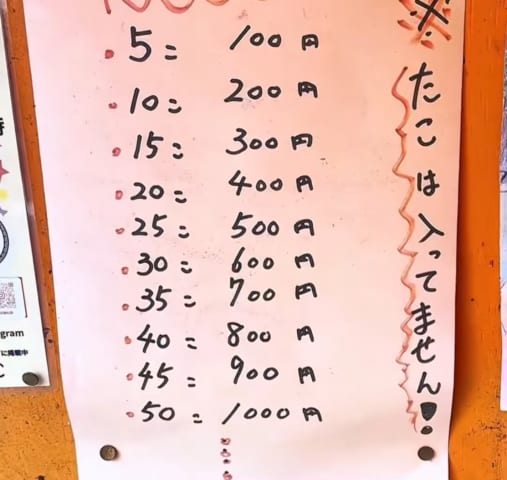 5コ 100円
10コ 200円
15コ 300円
20コ 400円
25コ 500円
30コ 600円
35コ 700円
40コ 800円
45コ 900円
50コ 1000円
※たこは入ってません!
gram
に掲載中